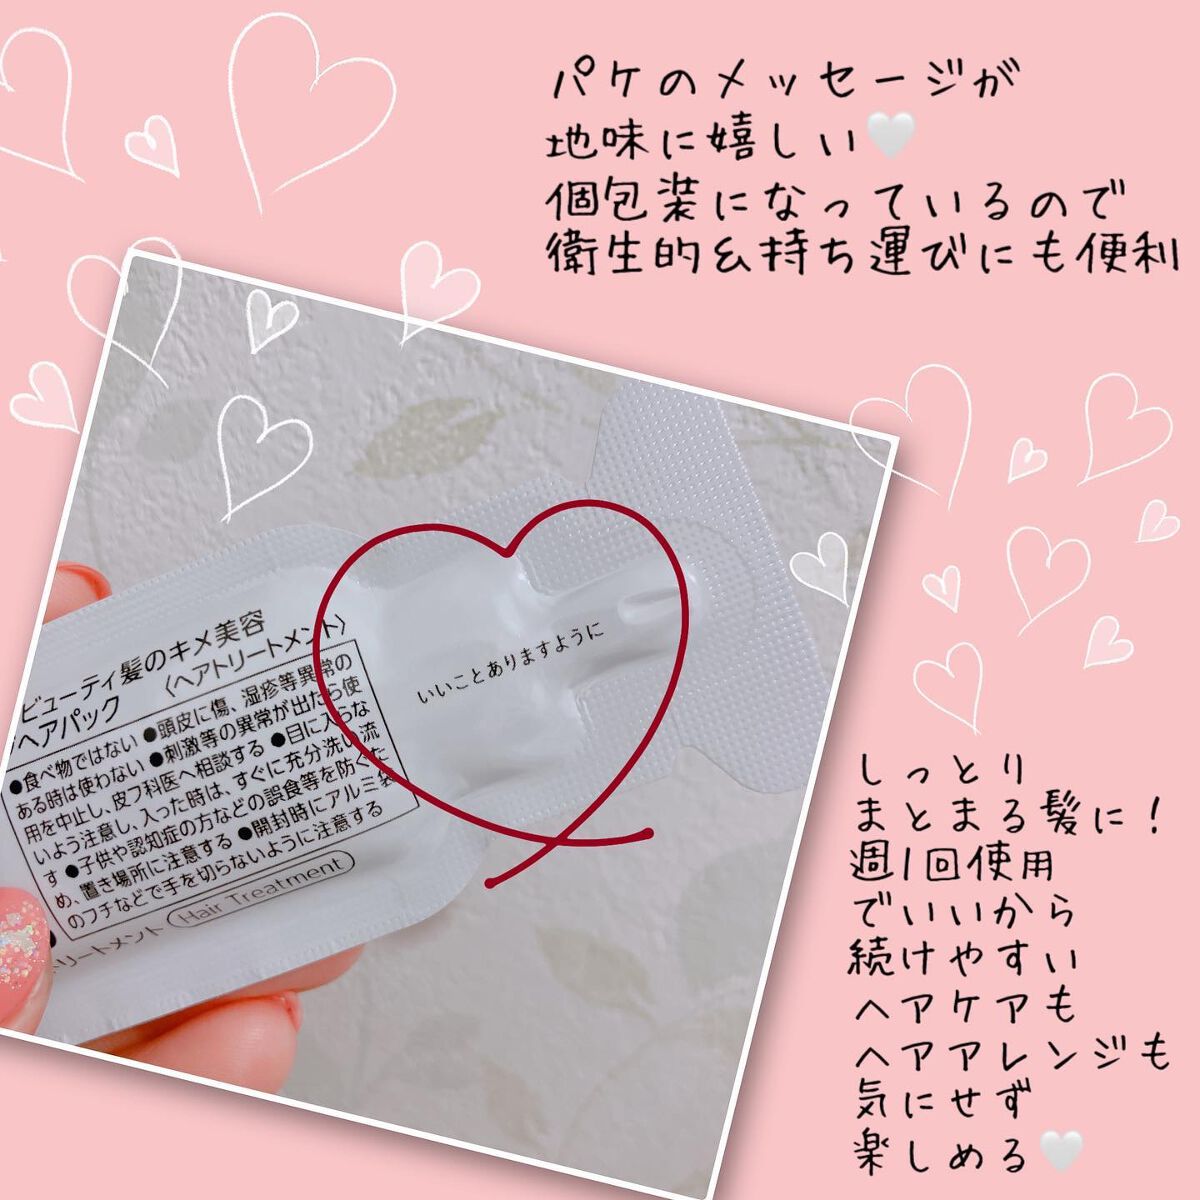 パケのメッセージが
地味に嬉しい🤍
個包装になっているので
衛生的&持ち運びにも便利
いいことありますように
ビューティ髪のキメ美容
ヘアパック 〈ヘアトリートメント〉
●食べ物ではない ●頭皮に傷、湿疹等異常の
ある時は使わない ●刺激等の異常が出たら使
用を中止し、皮フ科医へ相談する ●目に入らな
いよう注意し、入った時は、すぐに充分洗い流
す ●子供や認知症の方などの誤食等を防ぐた
め、置き場所に注意する ●開封時にアルミ袋
のフチなどで手を切らないように注意する
トリートメント Hair Treatment
しっとり
まとまる髪に!
週1回使用
でいいから
続けやすい
ヘアケアも
ヘアアレンジも
気にせず
楽しめる🤍